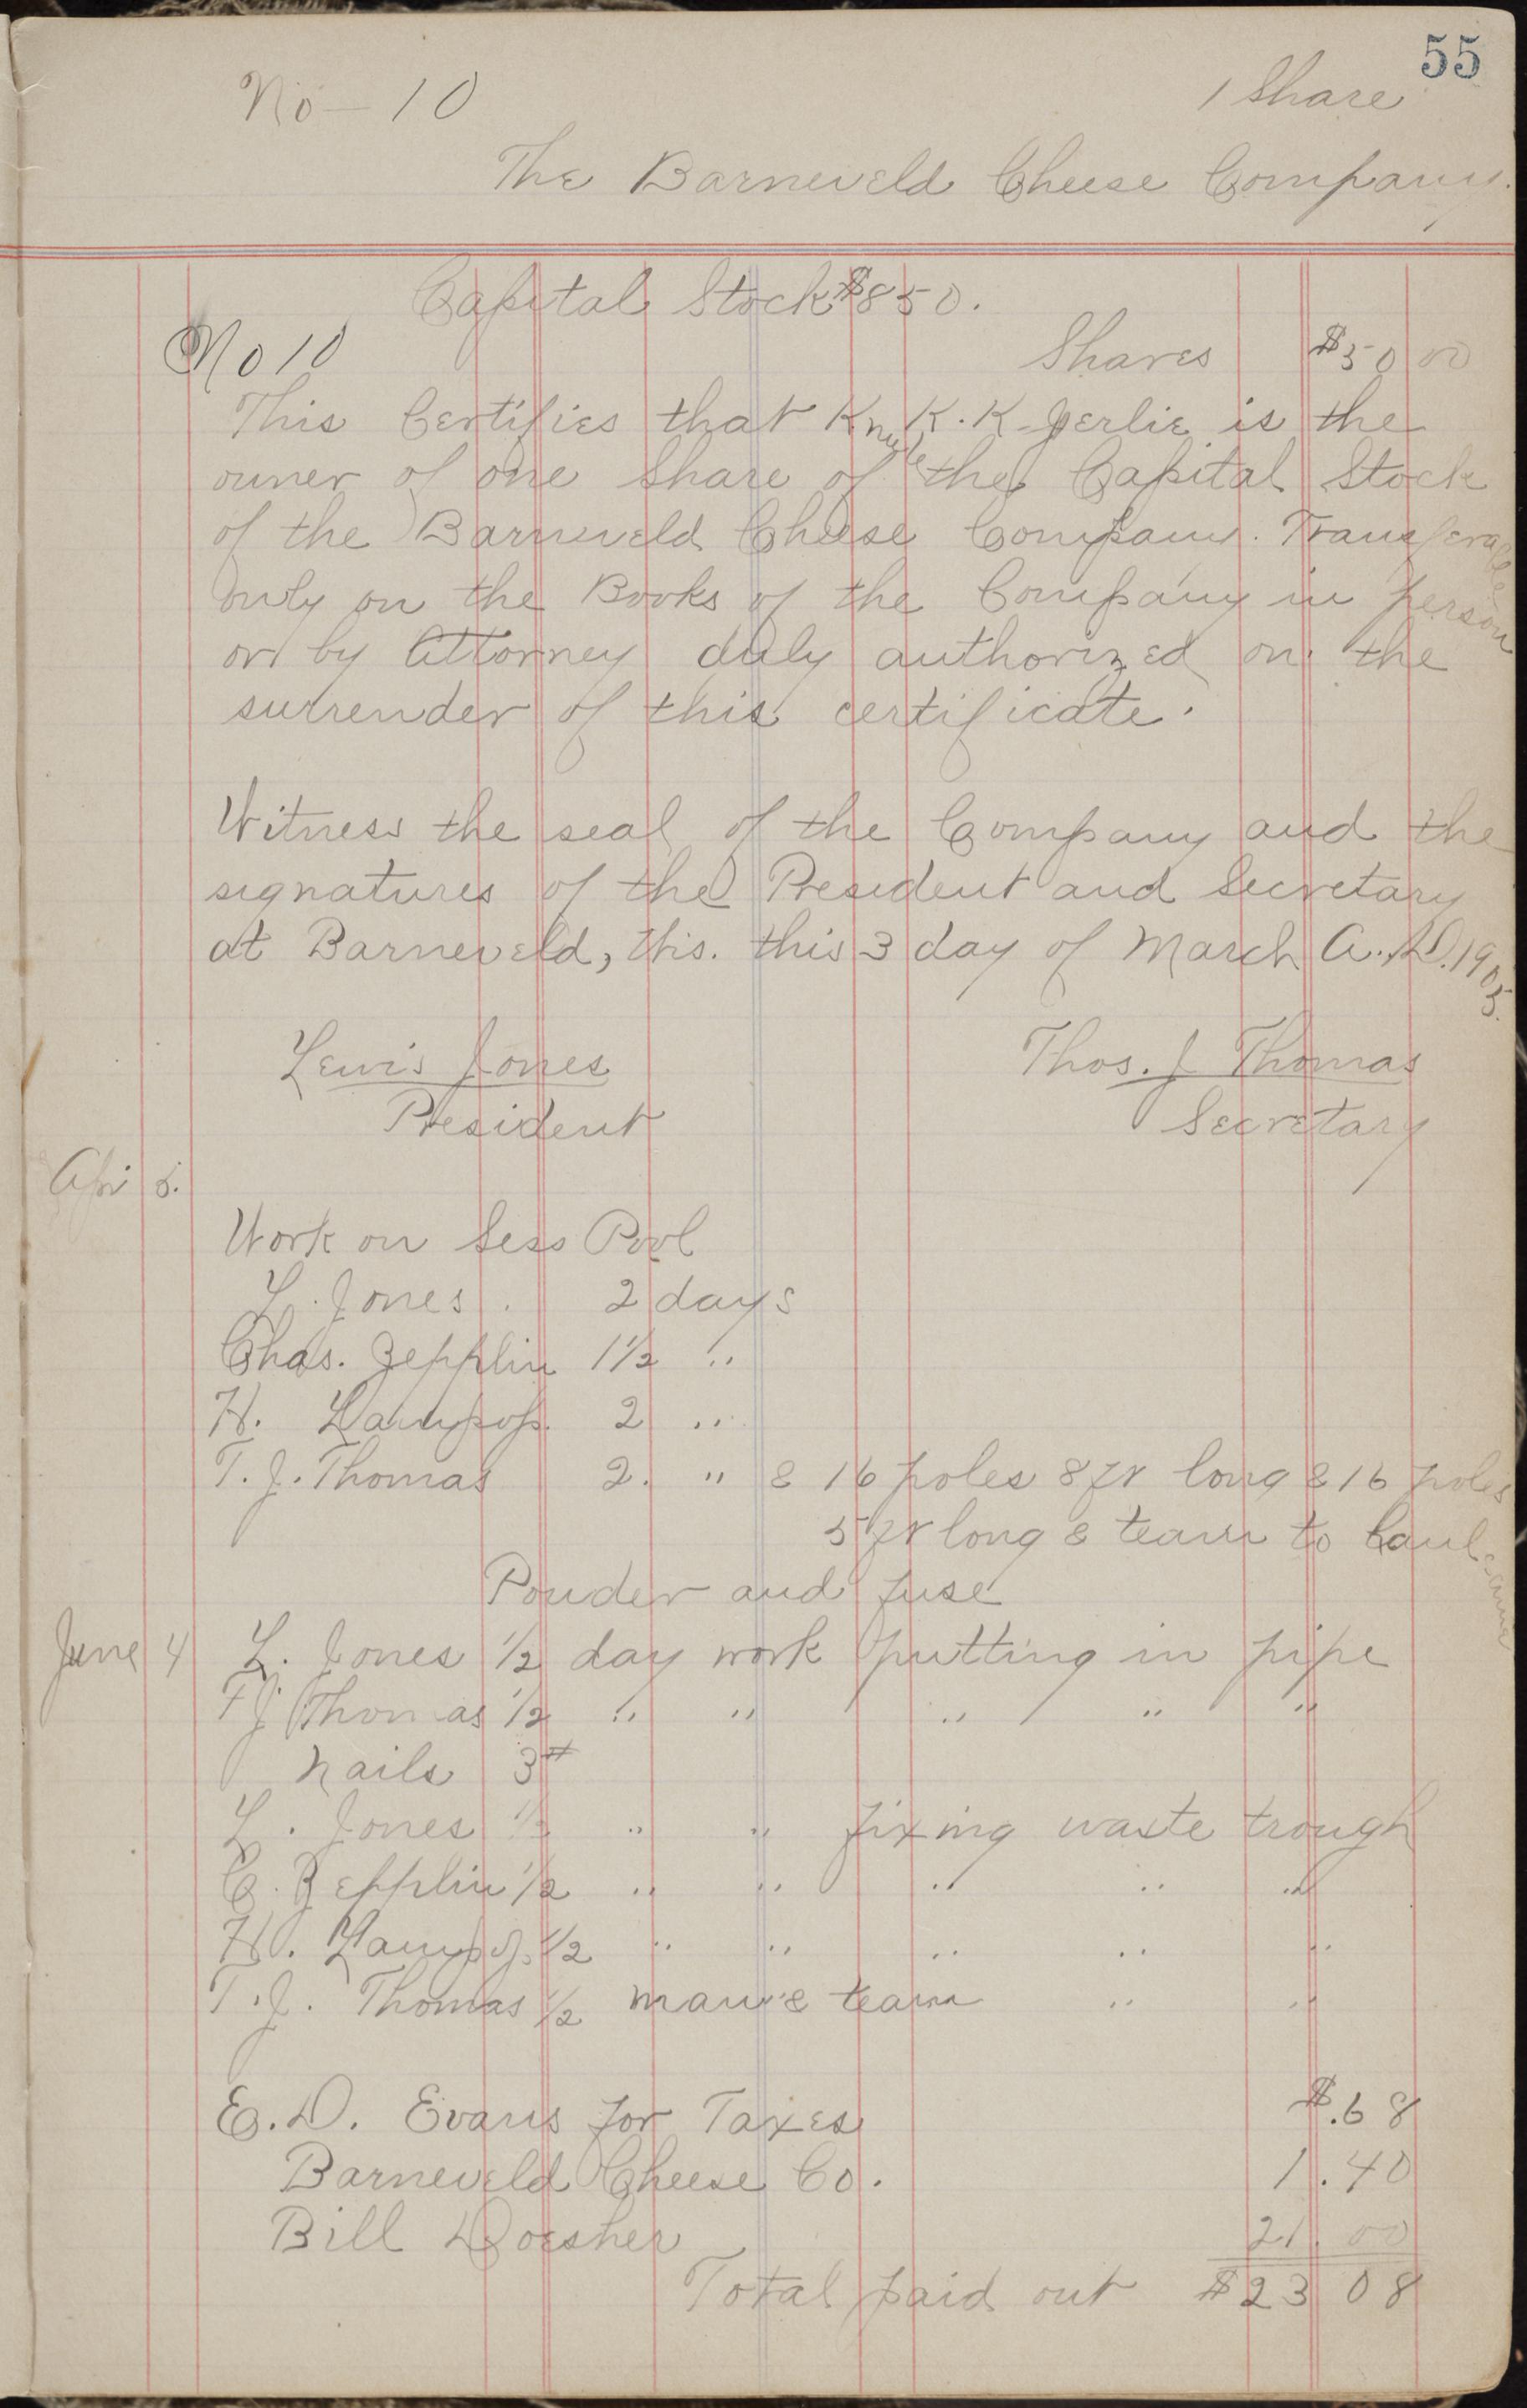 55
No - 10 1 Share
The Barneveld Cheese Company.
Capital Stock $850.
No 10 Shares $50 00
This Certifies that Knute K. K. Jerlie is the
owner of one Share of the Capital Stock
of the Barneveld Cheese Company. Transferable
only on the Books of the Company in person
or by Attorney duly authorized on the
surrender of this certificate.
Witness the seal of the Company and the
signatures of the President and Secretary
at Barneveld, Wis. this 3 day of March A.D. 1905.
Lewis Jones Thos. J Thomas
President Secretary
Apr 5.
Work on Sess Pool
L. Jones. 2 days
Chas. Zepplin 1 1/2 "
H. 2 "
T. J. Thomas 2. " & 16 poles 8 ft long & 16 poles
5 ft long & team to haul
Powder and fuse
June 4 L. Jones 1/2 day work putting in pipe
T J Thomas 1/2 " " " " "
Nails 3#
L. Jones 1/2 " " fixing waste trough
C. Zepplin 1/2 " " " " "
H. 1/2 " " " " "
T. J. Thomas 1/2 man & team " "
E. D. Evans for Taxes $.68
Barneveld Cheese Co. 1.40
Bill Doesher 21.00
Total paid out $23 08